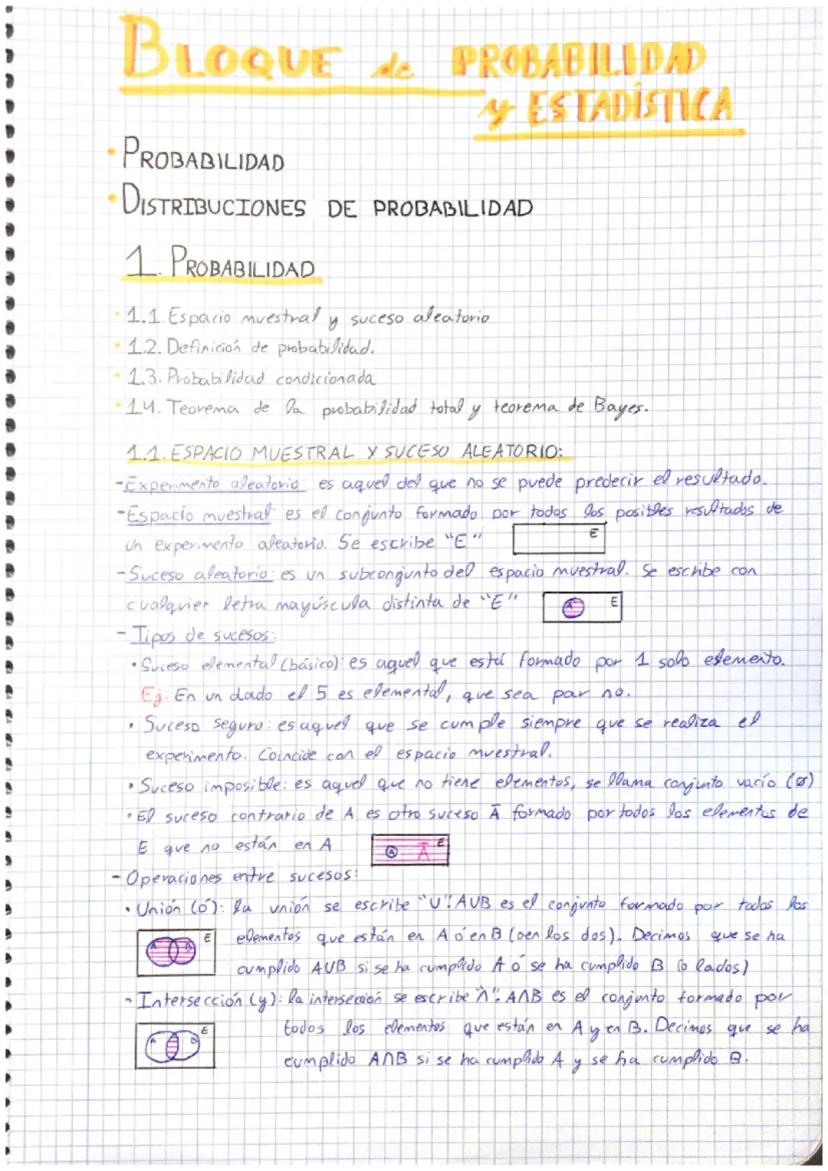 BLOQUE de PROBABILIDAD
y ESTADÍSTICA
· PROBABILIDAD
· DISTRIBUCIONES DE PROBABILIDAD
1. PROBABILIDAD
· 1.1 Espacio muestral y suceso aleatorio
· 1.2. Definición de probabilidad.
· 1.3. Probabilidad condicionada
· 1.4. Teorema de la probabilidad total y teorema de Bayes.
1.1. ESPACIO MUESTRAL Y SUCESO ALEATORIO:
- Experimento aleatorio: es aquel del que no se puede predecir el resultado.
- Espacio muestral: es el conjunto formado por todos los posibles resultados de
un experimento aleatorio. Se escribe "E" E
- Suceso aleatorio: es un subconjunto del espacio muestral. Se escribe con
cualquier letra mayúscula distinta de "E" A E
- Tipos de sucesos:
· Suceso elemental (básico): es aquel que está formado por 1 solo elemento.
Ej: En un dado el 5 es elemental, que sea par no.
· Suceso seguro: es aquel que se cumple siempre que se realiza el
experimento. Coincide con el espacio muestral.
· Suceso imposible: es aquel que no tiene elementos, se llama conjunto vacío (ø)
· El suceso contrario de A es otro suceso Ā formado por todos los elementos de
E que no están en A A Ā E
- Operaciones entre sucesos:
· Unión (ó): la unión se escribe "U". AUB es el conjunto formado por todos los
A B E elementos que están en A ó en B (o en los dos). Decimos que se ha
cumplido AUB si se ha cumplido A ó se ha cumplido B (o lados)
- Intersección (y): la intersección se escribe "∩". A∩B es el conjunto formado por
A B E todos los elementos que están en A y en B. Decimos que se ha
cumplido A∩B si se ha cumplido A y se ha cumplido B.